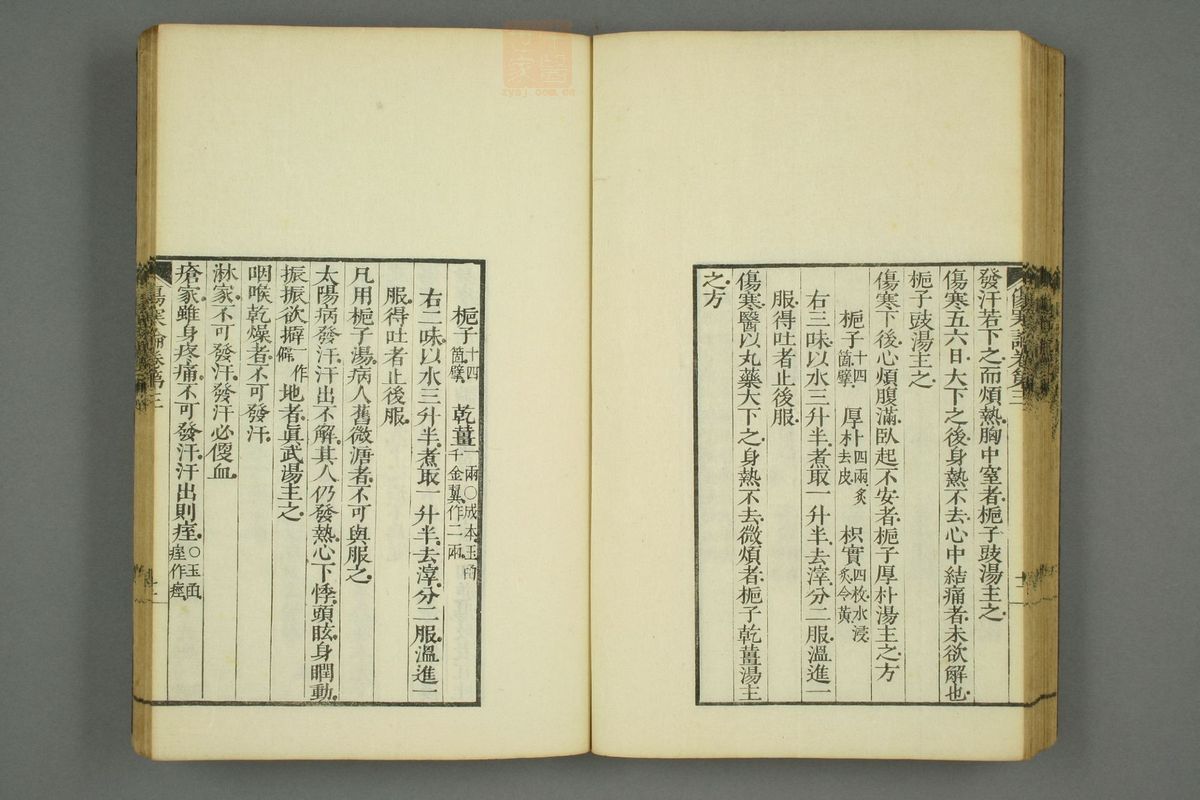 發汗若下之而煩熱胸中窒者梔子豉湯主之
傷寒五六日大下之後身熱不去心中結痛者未欲解也
梔子豉湯主之
傷寒下後心煩腹滿臥起不安者梔子厚朴湯主之方
梔子十四箇擘 厚朴四兩炙去皮 枳實四枚水浸炙令黃
右三味以水三升半煮取一升半去滓分二服溫進一
服得吐者止後服
傷寒醫以丸藥大下之身熱不去微煩者梔子乾薑湯主
之方
梔子十四箇擘 乾薑一兩〇成本玉函千金翼作二兩
右二味以水三升半煮取一升半去滓分二服溫進一
服得吐者止後服
凡用梔子湯病人舊微溏者不可與服之
太陽病發汗汗出不解其人仍發熱心下悸頭眩身瞤動
振振欲擗一作僻地者眞武湯主之
咽喉乾燥者不可發汗
淋家不可發汗發汗必便血
瘡家雖身疼痛不可發汗汗出則痓〇玉函痓作痙
傷寒論卷第三
zysj.com.cn